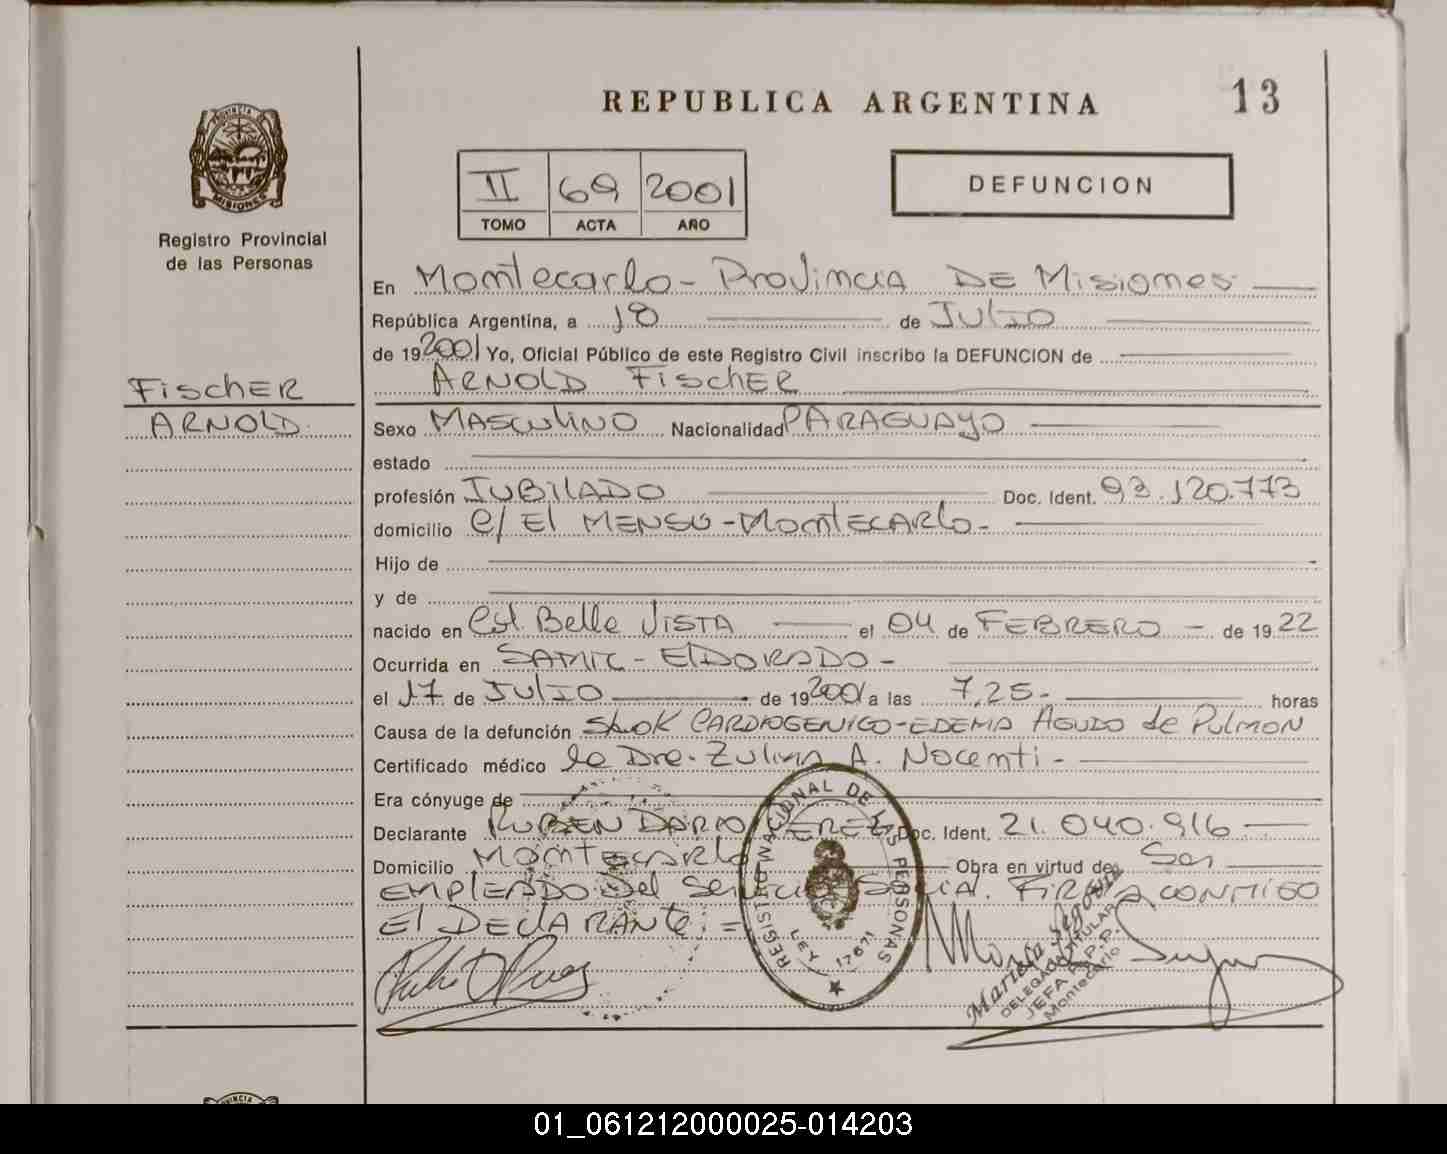 REPUBLICA ARGENTINA
13
PROVINCIA DE
MISIONES
Registro Provincial
de las Personas
II 69 2001
TOMO ACTA AÑO
DEFUNCION
En Montecarlo - Provincia DE Misiones
República Argentina, a 18 de Julio
de 192001 Yo, Oficial Público de este Registro Civil inscribo la DEFUNCION de
ARNOLD FischER
FischER
ARNOLD
Sexo MASCULINO Nacionalidad PARAGUAYO
estado
profesión JUBILADO Doc. Ident. 93.120.773
domicilio C/ El MENSÚ - MontECARlo -
Hijo de
y de
nacido en Col. Belle VISTA el 04 de FEBRERO - de 19 22
Ocurrida en SAMIC - ElDORADO -
el 17 de JULIO de 192001 a las 7,25- horas
Causa de la defunción ShoK CARDIOGENICO - EDEMA AGUDO de PULMON
Certificado médico la Dra. Zulma A. Nocenti -
Era cónyuge de
Declarante RUBEN DARIO PEREZ Doc. Ident. 21.040.916
Domicilio MONTECARLO Obra en virtud de Ser
EMPLEADO Del Servicio Social. FIRMA CONMIGO
El DEClARANTE. =
REGISTRO NACIONAL DE LAS PERSONAS
LEY 17671
Mariela Segovia
DELEGADA TITULAR
JEFA R.P.P.
Montecarlo
01_061212000025-014203